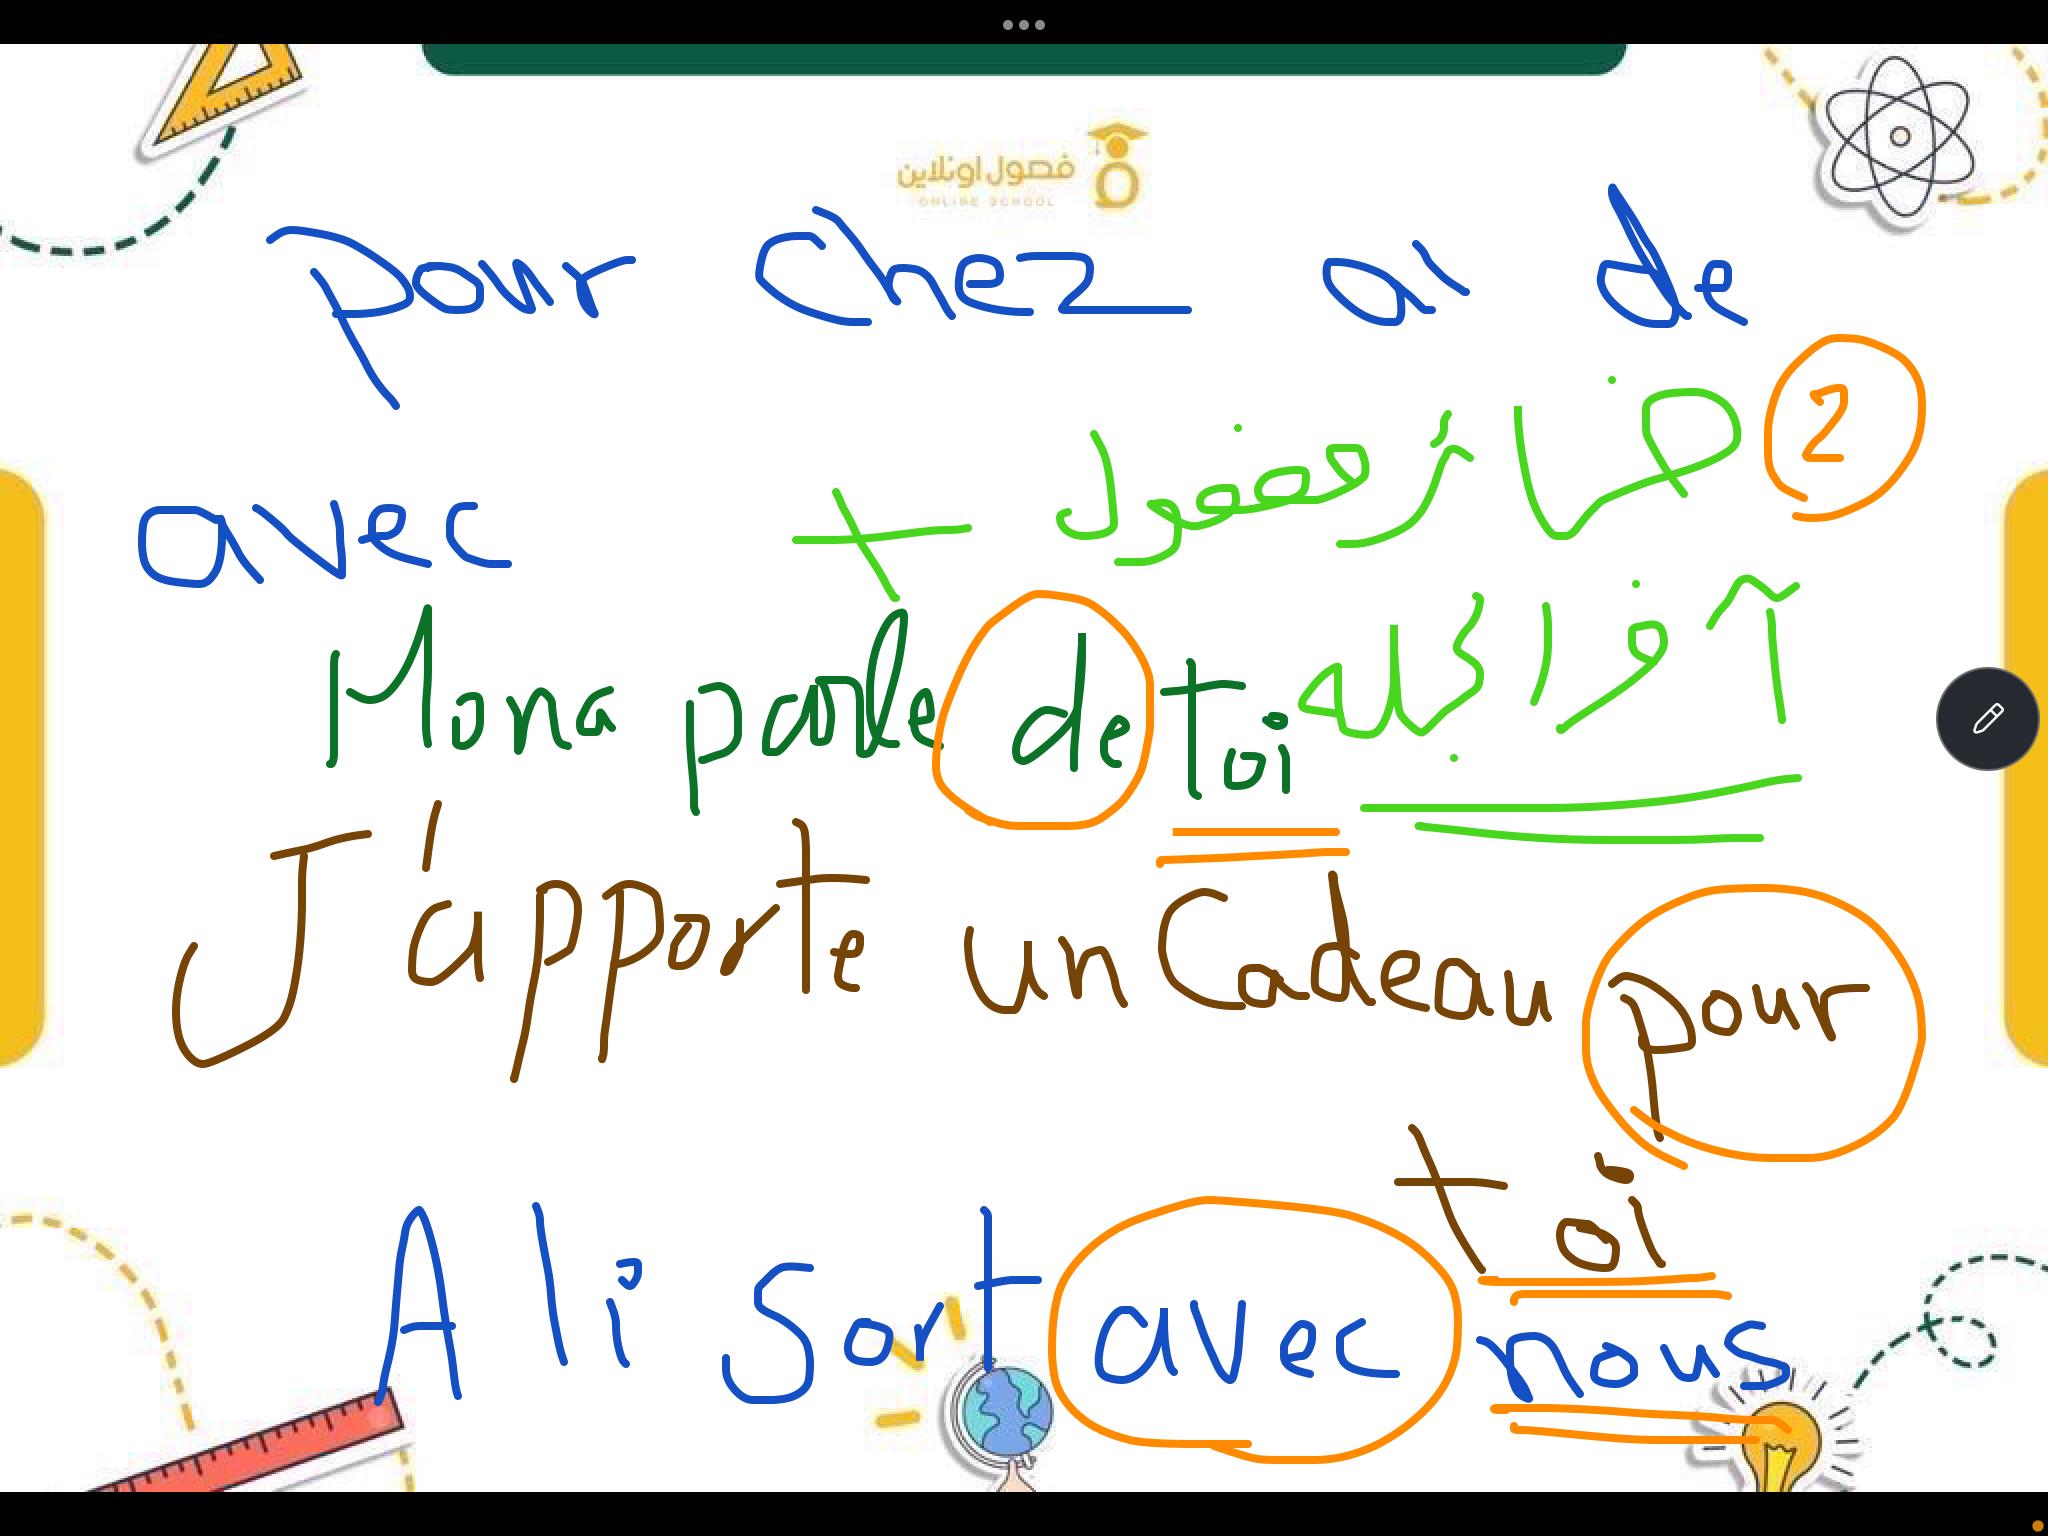 فصول اونلاين
ONLINE SCHOOL
pour chez à de
avec + ضمائر مفعول 2
Mona parle de toi آخر الجمله
J'apporte un Cadeau pour
toi
Ali Sort avec nous